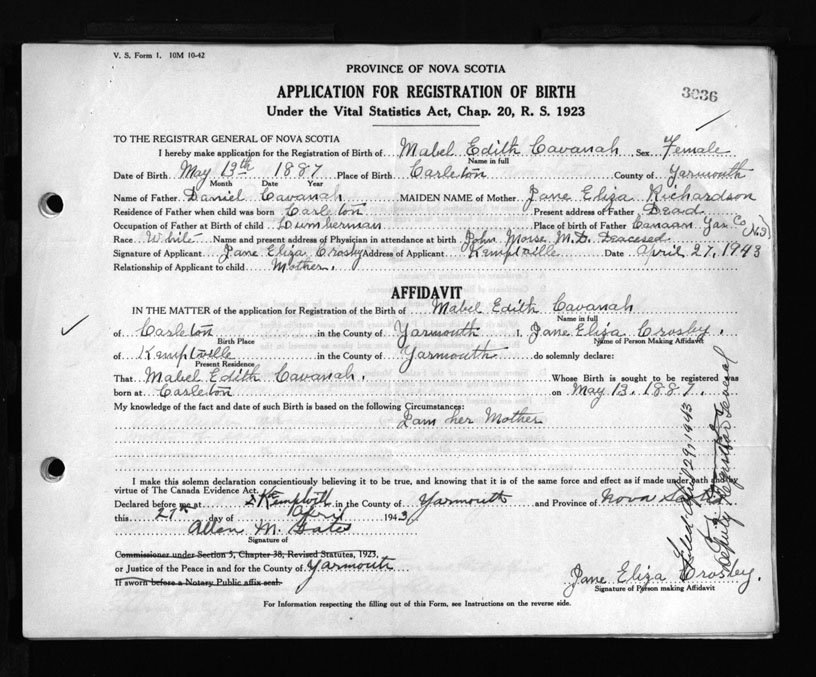 V. S. Form 1. 10M 10-42
PROVINCE OF NOVA SCOTIA
APPLICATION FOR REGISTRATION OF BIRTH
3036
Under the Vital Statistics Act, Chap. 20, R. S. 1923
TO THE REGISTRAR GENERAL OF NOVA SCOTIA
I hereby make application for the Registration of Birth of Mabel Edith Cavanah Sex Female
Name in full
Date of Birth May 13th 1887 Place of Birth Carleton County of Yarmouth
Month Date Year
Name of Father Daniel Cavanah MAIDEN NAME of Mother Jane Eliza Richardson
Residence of Father when child was born Carleton Present address of Father Dead
Occupation of Father at Birth of child Lumberman Place of birth of Father Canaan Yar Co (NS)
Race White Name and present address of Physician in attendance at birth John Morse M.D. Deacesed
Signature of Applicant Jane Eliza Crosby Address of Applicant Kemptville Date April 27, 1943
Relationship of Applicant to child Mother.
AFFIDAVIT
IN THE MATTER of the application for Registration of the Birth of Mabel Edith Cavanah
Name in full
of Carleton in the County of Yarmouth I, Jane Eliza Crosby.
Birth Place Name of Person Making Affidavit
of Kemptville in the County of Yarmouth do solemnly declare:
Present Residence
That Mabel Edith Cavanah. Whose Birth is sought to be registered was
born at Carleton on May 13, 1887.
My knowledge of the fact and date of such Birth is based on the following Circumstances:
I am her Mother
I make this solemn declaration conscientiously believing it to be true, and knowing that it is of the same force and effect as if made under oath and by
virtue of The Canada Evidence Act.
Declared before me at Kemptville in the County of Yarmouth and Province of Nova Scotia
this 27th day of April 1943
Allen M. Gates
Signature of
Commissioner under Section 3, Chapter 38, Revised Statutes, 1923,
or Justice of the Peace in and for the County of Yarmouth
If sworn before a Notary Public affix seal.
Jane Eliza Crosby.
Signature of Person making Affidavit
For Information respecting the filling out of this Form, see Instructions on the reverse side.
Filed April 29, 1943
Deputy Registrar General